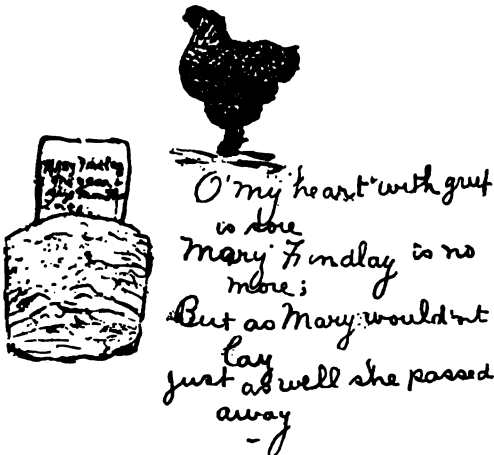 Mary Findlay
O' my heart with grief
is sore
Mary Findlay is no
more;
But as Mary wouldn't
lay
just as well she passed
away